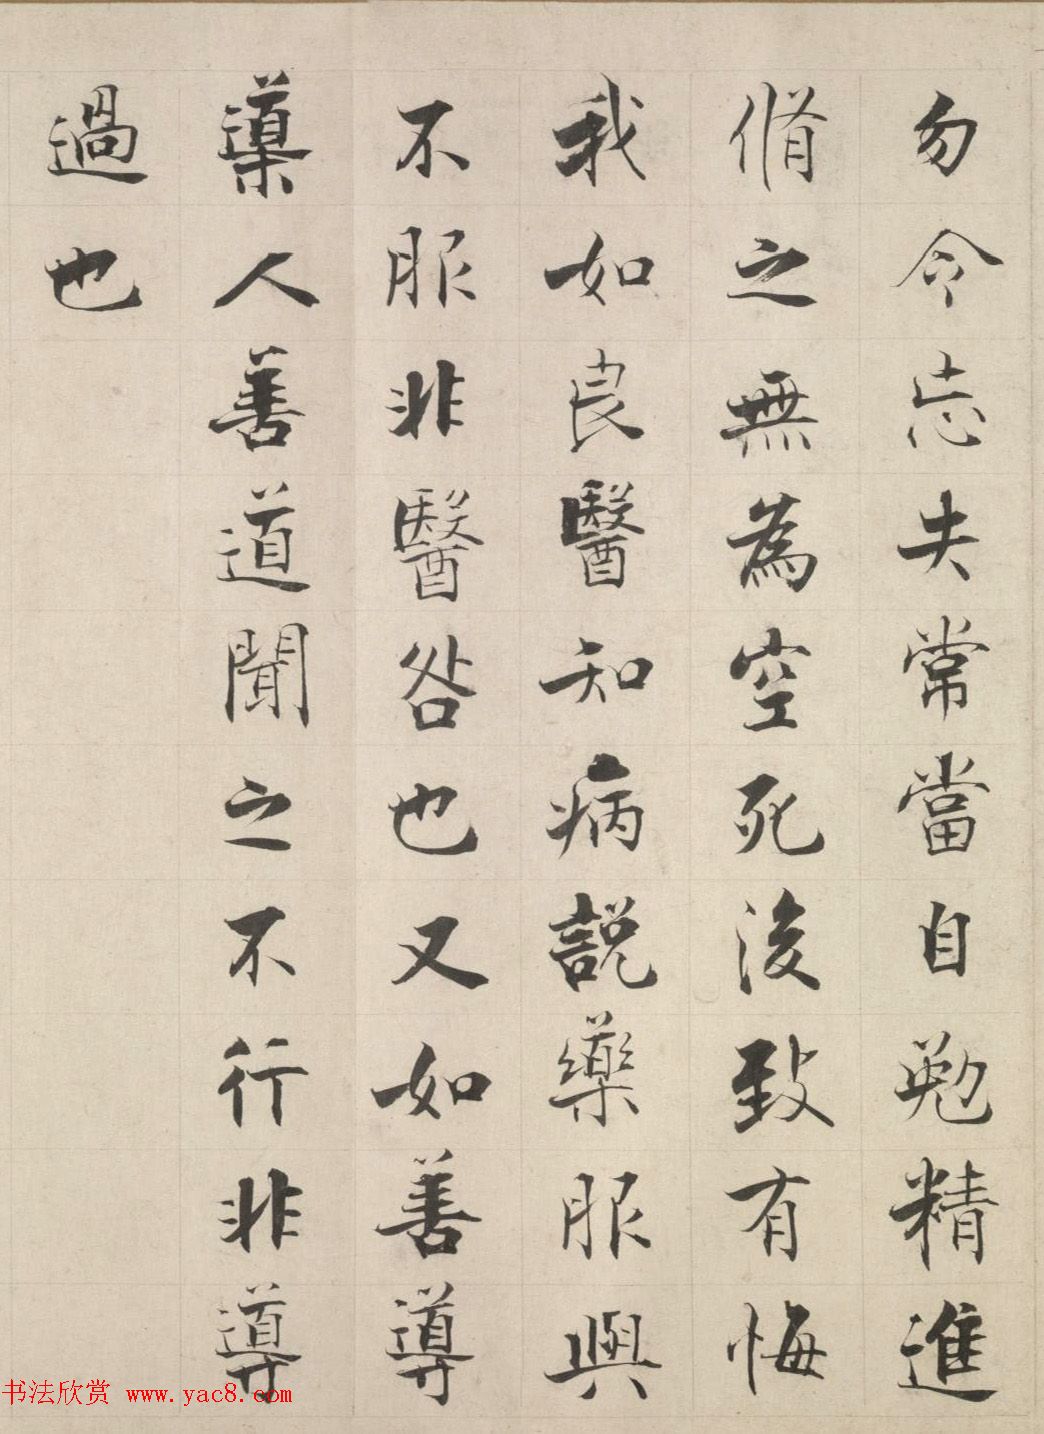 勿令忘失常當自勉精進
脩之無為空死後致有悔
我如良醫知病説藥服與
不服非醫咎也又如善導
導人善道聞之不行非導
過也
书法欣赏 www.yac8.com